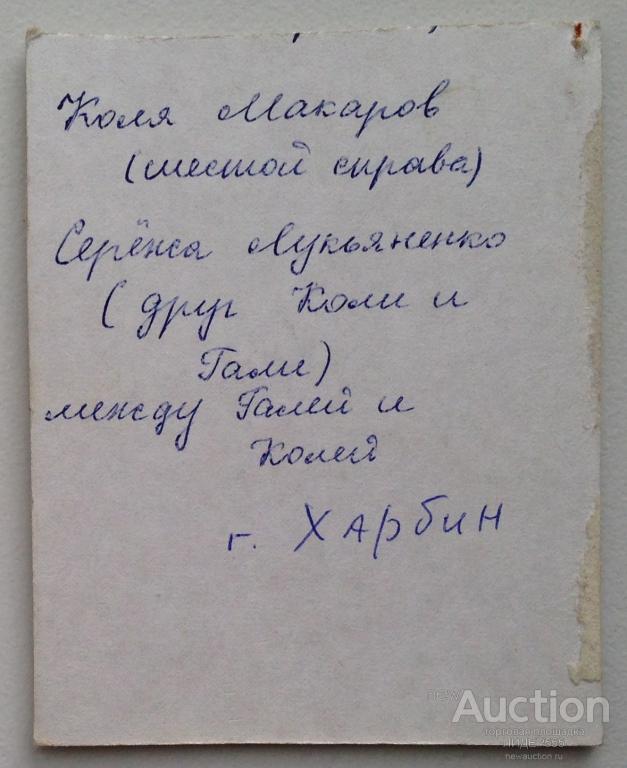 Коля Макаров
(шестой справа)
Серёжа Лукьяненко
(друг Коли и
Гали)
между Галей и
Колей
г. Харбин
Auction
торговая площадка
newauction.ru